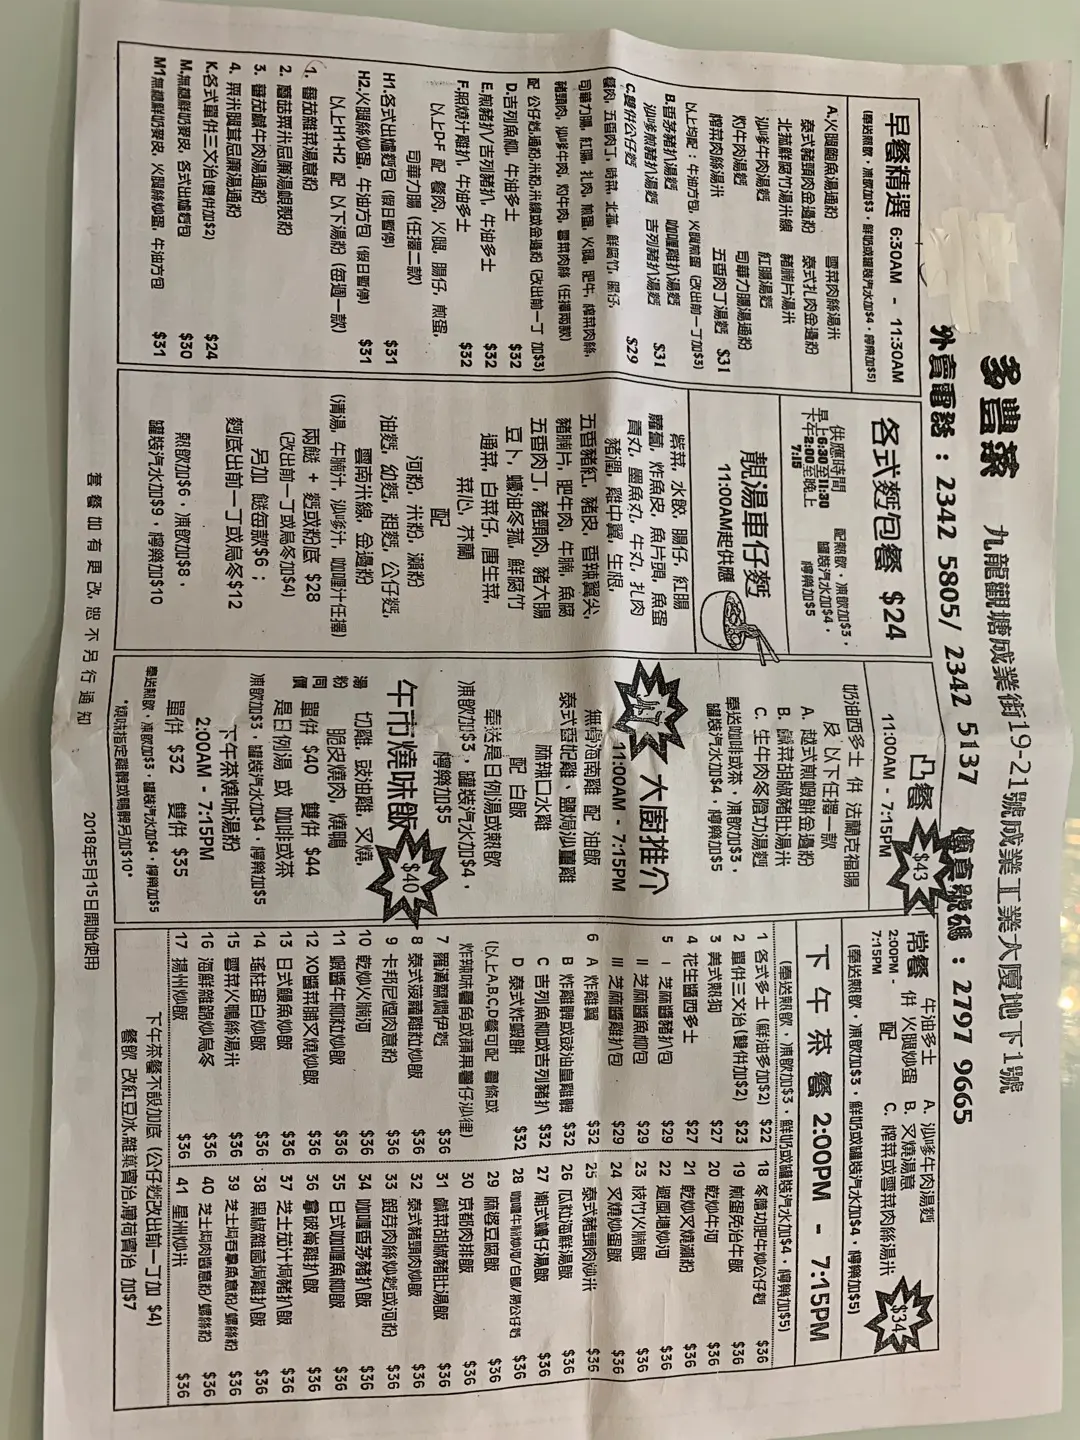 多豐茶
九龍觀塘成業街19-21號成業工業大廈地下1號
外賣電話：2342 5805/ 2342 5137 傳真號碼：2797 9665
早餐精選 6:30AM - 11:30AM
(奉送熱飲，凍飲加$3，鮮奶或罐裝汽水加$4，檸樂加$5)
A.火腿鮋魚湯通粉 雪菜肉絲湯米
泰式豬頸肉金邊粉 泰式扎肉金邊粉
北菰鮮腐竹湯米線 豬腩片湯米
沙嗲牛肉湯麵 紅腸湯麵
灼牛肉湯麵 司華力腸湯通粉
榨菜肉絲湯米 五香肉丁湯麵 $31
以上均配：牛油方包，火腿煎蛋 (改出前一丁加$3)
B.香茅豬扒湯麵 咖喱雞扒湯麵
沙嗲煎豬扒湯麵 吉列豬扒湯麵 $31
C.雙併公仔麵 $29
餐肉，五香肉丁，榨菜，北菰，鮮腐竹，腸仔，
司華力腸，紅腸，扎肉，煎蛋，火腿，肥牛，榨菜肉絲，
豬頸肉，沙嗲牛肉，灼牛肉，雪菜肉絲 (任擇兩款)
配 公仔麵,通粉,米粉,米線或金邊粉 (改出前一丁 加$3)
D.吉列魚柳，牛油多士 $32
E.煎豬扒/吉列豬扒，牛油多士 $32
F.照燒汁雞扒，牛油多士 $32
以上D-F 配 餐肉，火腿，腸仔，煎蛋，
司華力腸 (任擇二款)
H1.各式出爐麵包 (假日暫停) $31
H2.火腿絲炒蛋，牛油方包 (假日暫停) $31
以上H1-H2 配 以下湯粉 (每週一款)
1. 番茄雜菜湯意粉
2. 蘑菇粟米忌廉湯蜆殼粉
3. 番茄鹹牛肉湯通粉
4. 粟米腿茸忌廉湯通粉
K.各式單件三文治(雙併加$2) $24
M.無糖鮮奶麥皮，各式出爐麵包 $30
M1無糖鮮奶麥皮，火腿絲炒蛋，牛油方包 $31
各式麵包餐 $24
供應時間 配熱飲，凍飲加$3，
早上6:30至11:30 罐裝汽水加$4，
下午2:00至晚上 檸樂加$5
7:15
靚湯車仔麵
11:00AM起供應
紫菜，水餃，腸仔，紅腸
蘿蔔，炸魚皮，魚片頭，魚蛋
貢丸，墨魚丸，牛丸，扎肉
豬潤，雞中翼，生根，
五香豬紅，豬皮，香辣翼尖，
豬腩片，肥牛肉，牛腩，魚腐
五香肉丁，豬頸肉，豬大腸
豆卜，蠔油冬菰，鮮腐竹
通菜，白菜仔，唐生菜，
菜心，芥蘭
配
河粉，米粉，瀨粉
油麵，幼麵，粗麵，公仔麵，
雲南米線，金邊粉
(清湯，牛腩汁，沙嗲汁，咖喱汁任擇)
兩餸 + 麵或粉底 $28
(改出前一丁或烏冬加$4)
另加 餸每款$6；
麵底出前一丁或烏冬$12
熱飲加$6，凍飲加$8，
罐裝汽水加$9，檸樂加$10
凸餐 $43
11:00AM - 7:15PM
奶油西多士 併 法蘭克福腸
及 以下任擇一款
A. 越式煎蝦餅金邊粉
B. 鹹菜胡椒豬肚湯米
C. 生牛肉冬陰功湯麵
奉送咖啡或茶，凍飲加$3，
罐裝汽水加$4，檸樂加$5
大廚推介
11:00AM - 7:15PM
無骨海南雞 配 油飯
泰式香妃雞、鹽焗沙薑雞
麻辣口水雞
配 白飯
奉送是日例湯或熱飲
凍飲加$3，罐裝汽水加$4，
檸樂加$5
午市燒味飯 $40
切雞，豉油雞，叉燒，
脆皮燒肉，燒鴨
湯粉同價
單併 $40 雙併 $44
是日例湯 或 咖啡或茶
凍飲加$3，罐裝汽水加$4，檸樂加$5
下午茶燒味湯粉
2:00AM - 7:15PM
單併 $32 雙併 $35
奉送熱飲，凍飲加$3，罐裝汽水加$4，檸樂加$5
*燒味指定雞髀或鴨髀另加$10*
常餐 $34
2:00PM -
7:15PM
牛油多士
併 火腿炒蛋
配
A. 沙嗲牛肉湯麵
B. 叉燒湯意
C. 榨菜或雪菜肉絲湯米
(奉送熱飲，凍飲加$3，鮮奶或罐裝汽水加$4，檸樂加$5)
下午茶餐 2:00PM - 7:15PM
(奉送熱飲，凍飲加$3，鮮奶或罐裝汽水加$4，檸樂加$5)
1 各式多士 (鮮油多加$2) $22
2 單件三文治(雙併加$2) $23
3 美式熱狗 $27
4 花生醬西多士 $27
5 I 芝麻醬豬扒包 $29
II 芝麻醬魚柳包 $29
III 芝麻醬雞扒包 $29
6 A 炸雞翼 $32
B 炸雞髀或豉油皇雞髀 $32
C 吉列魚柳或吉列豬扒 $32
D 泰式炸蝦餅 $32
(以上A,B,C,D餐可配 薯條或
炸辣味薯角或蘋果薯仔沙律)
7 羅漢齋燜伊麵 $36
8 泰式菠蘿雞粒炒飯 $36
9 卡邦尼煙肉意粉 $36
10 乾炒火腩河 $36
11 蝦醬牛柳粒炒飯 $36
12 XO醬菜脯叉燒炒飯 $36
13 日式鰻魚炒飯 $36
14 瑤柱蛋白炒飯 $36
15 雪菜火鴨絲湯米 $36
16 海鮮雜錦炒烏冬 $36
17 揚州炒飯 $36
18 冬陰功肥牛炒公仔麵 $36
19 煎蛋免治牛飯 $36
20 乾炒牛河 $36
21 乾炒叉燒瀨粉 $36
22 避風塘炒河 $36
23 枝竹火腩飯 $36
24 叉燒炒蛋飯 $36
25 泰式豬頸肉炒米 $36
26 瓜粒海鮮湯飯 $36
27 潮式蠔仔湯飯 $36
28 咖喱牛腩炒河/白飯/撈公仔麵 $36
29 麻婆豆腐飯 $36
30 京都肉排飯 $36
31 鹹菜胡椒豬肚湯飯 $36
32 泰式豬頸肉炒飯 $36
33 銀芽肉絲炒麵或河粉 $36
34 咖喱香茅豬扒飯 $36
35 日式咖喱魚柳飯 $36
36 拿破崙雞扒飯 $36
37 芝士茄汁焗豬扒飯 $36
38 黑椒雜菌焗雞扒飯 $36
39 芝士焗吞拿魚意粉/螺絲粉 $36
40 芝士焗肉醬意粉/螺絲粉 $36
41 星洲炒米 $36
下午茶餐不設加底 (公仔麵改出前一丁加 $4)
餐飲 改紅豆冰,雜菓賓治,薄荷賓治 加$7
套餐如有更改，恕不另行通知
2018年5月15日開始使用